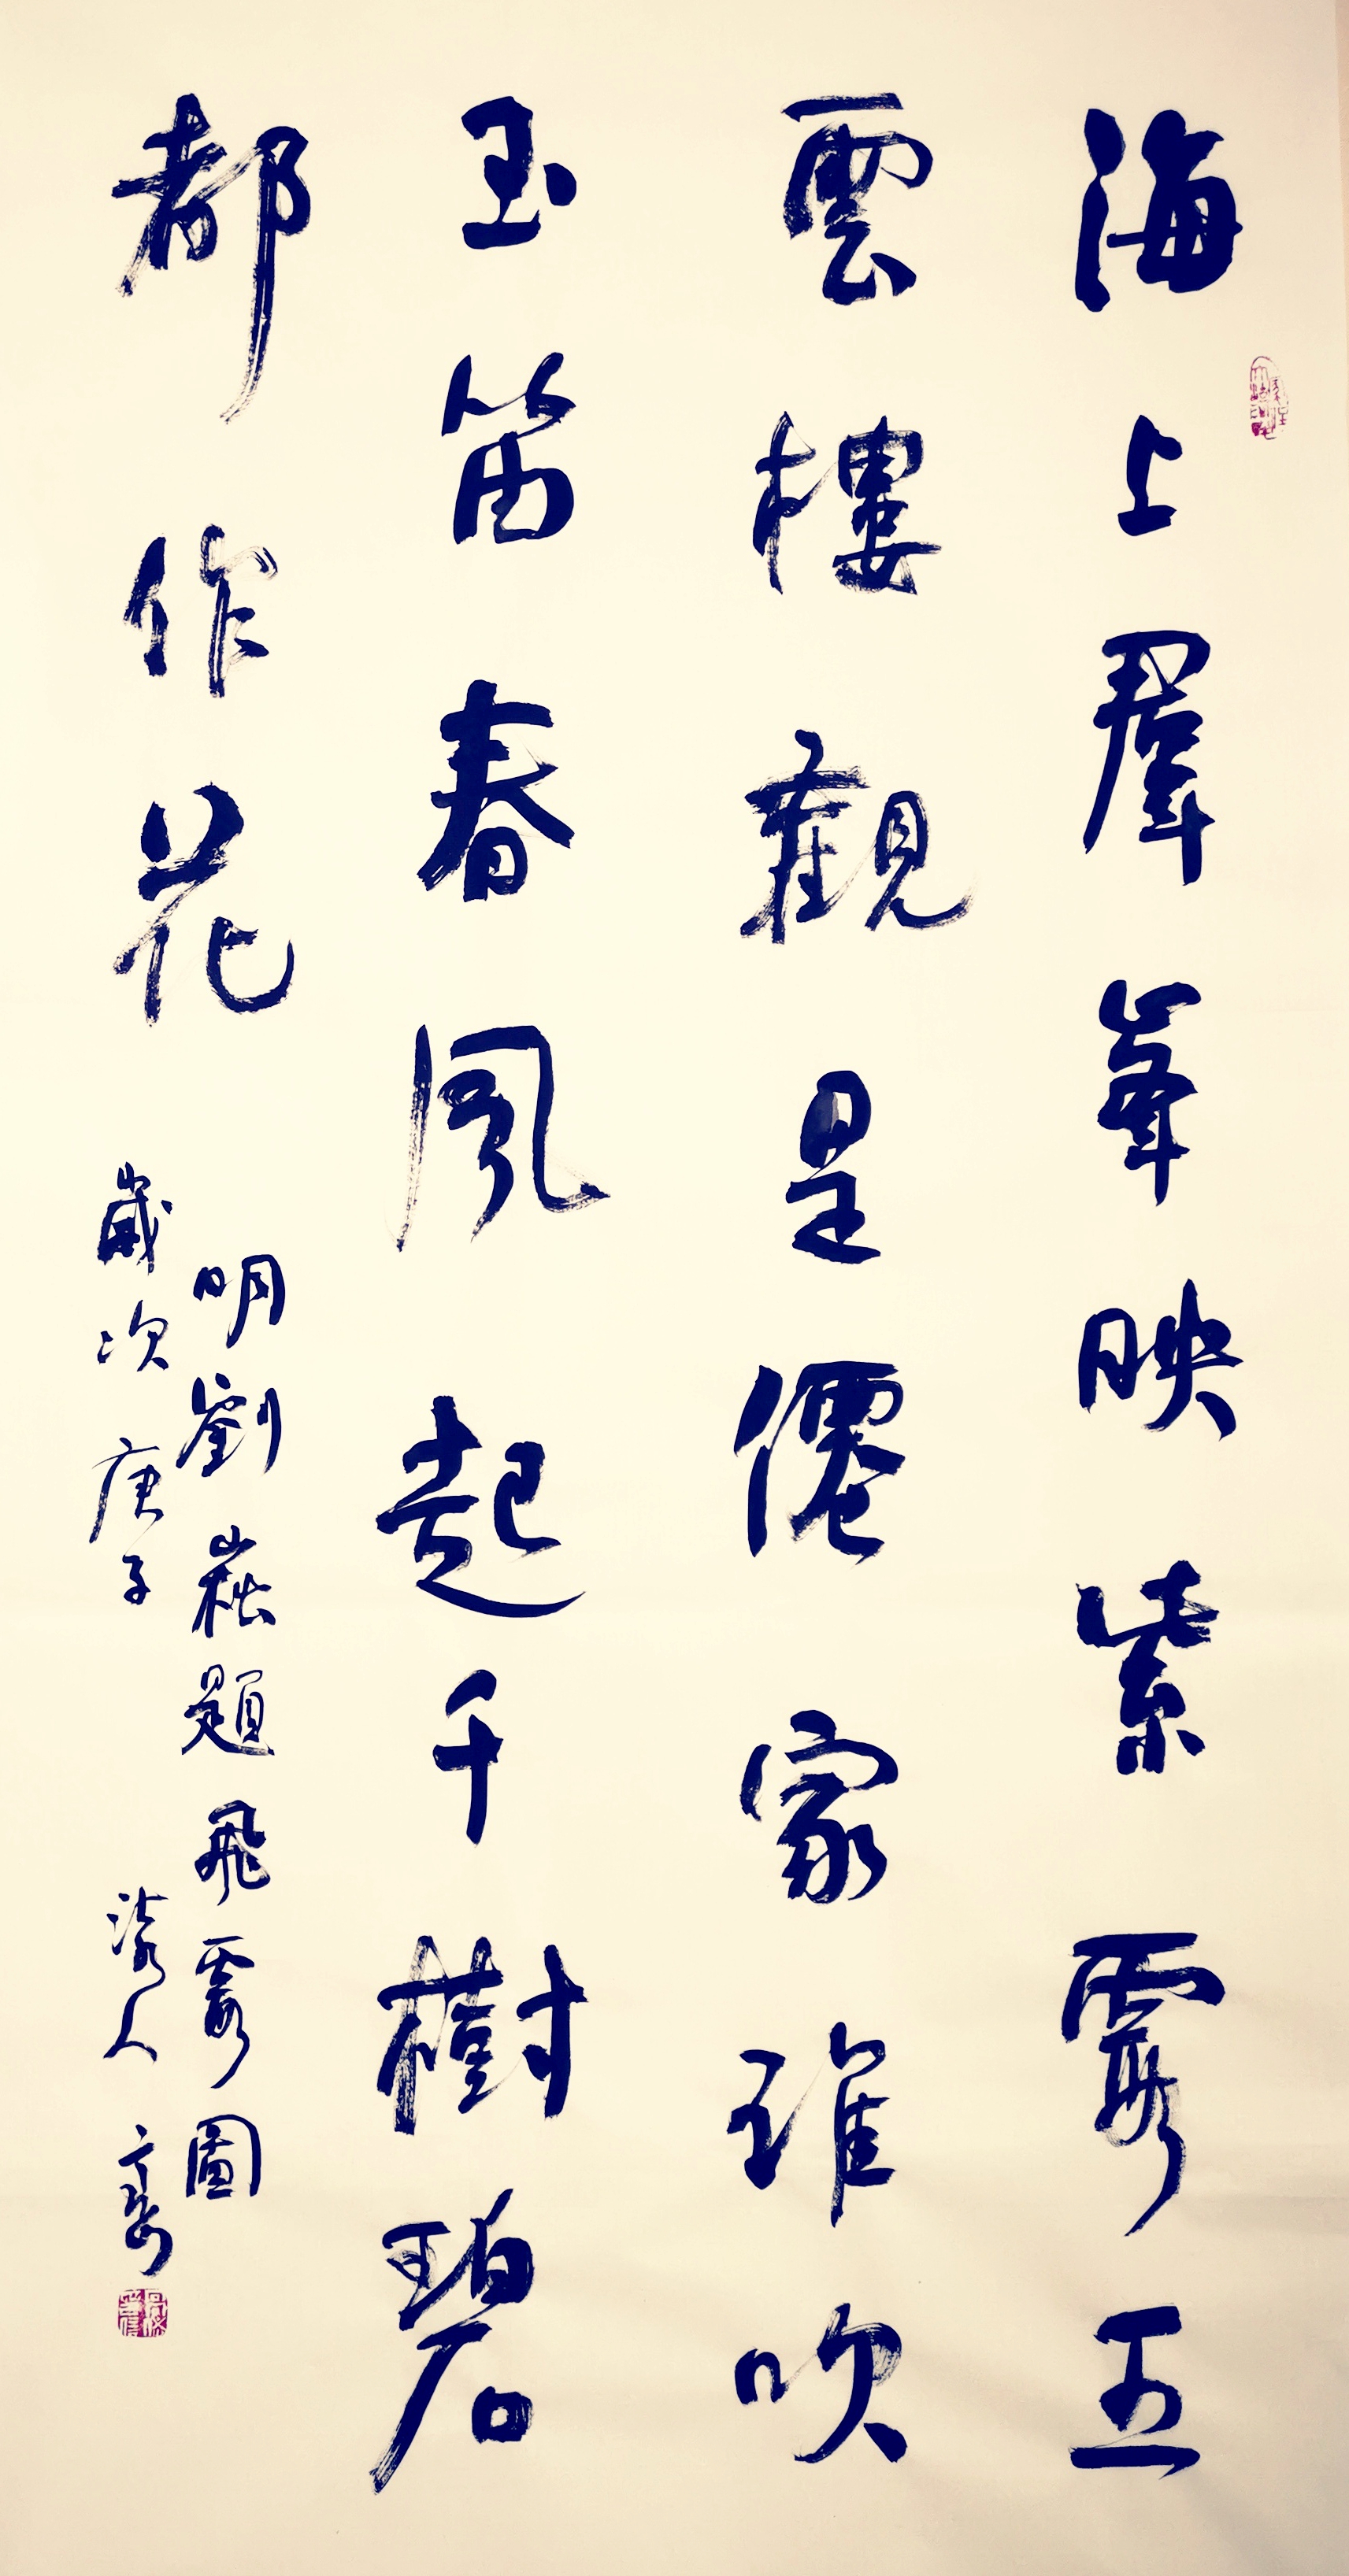 海上羣峯映紫霞五
雲樓觀是僊家誰吹
玉笛春風起千樹碧
都作花
明劉崧題飛霞圖
歲次庚子
人